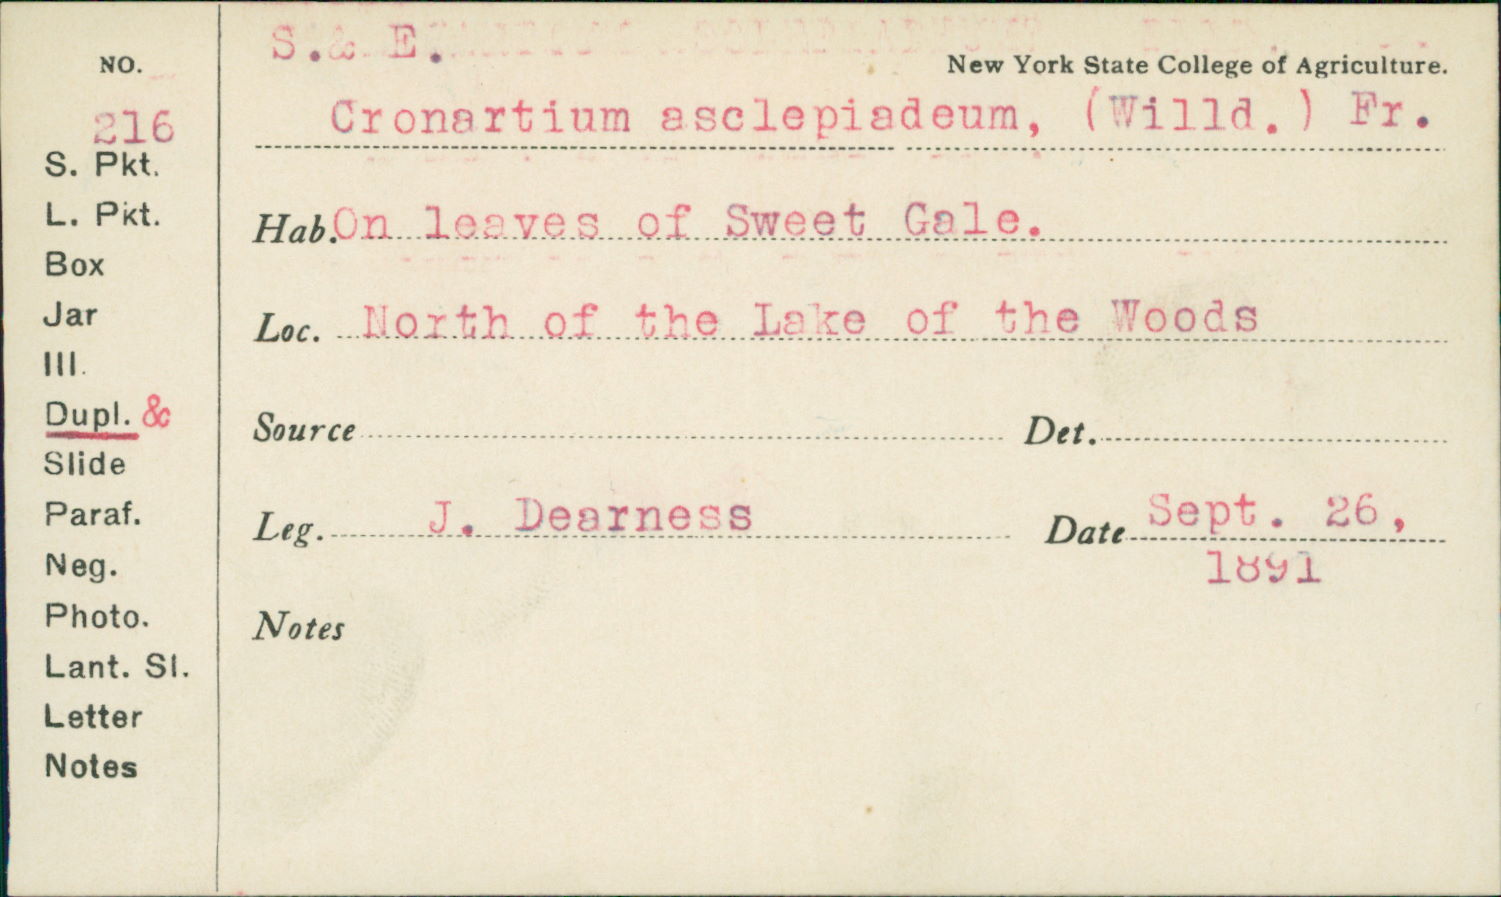 S. & E.
NO.
New York State College of Agriculture.
216
Cronartium asclepiadeum, (Willd.) Fr.
S. Pkt.
L. Pkt.
Hab. On leaves of Sweet Gale.
Box
Jar
Loc. North of the Lake of the Woods
Ill.
Dupl. &
Source Det.
Slide
Paraf.
Leg. J. Dearness Date Sept. 26,
1891
Neg.
Photo.
Notes
Lant. Sl.
Letter
Notes